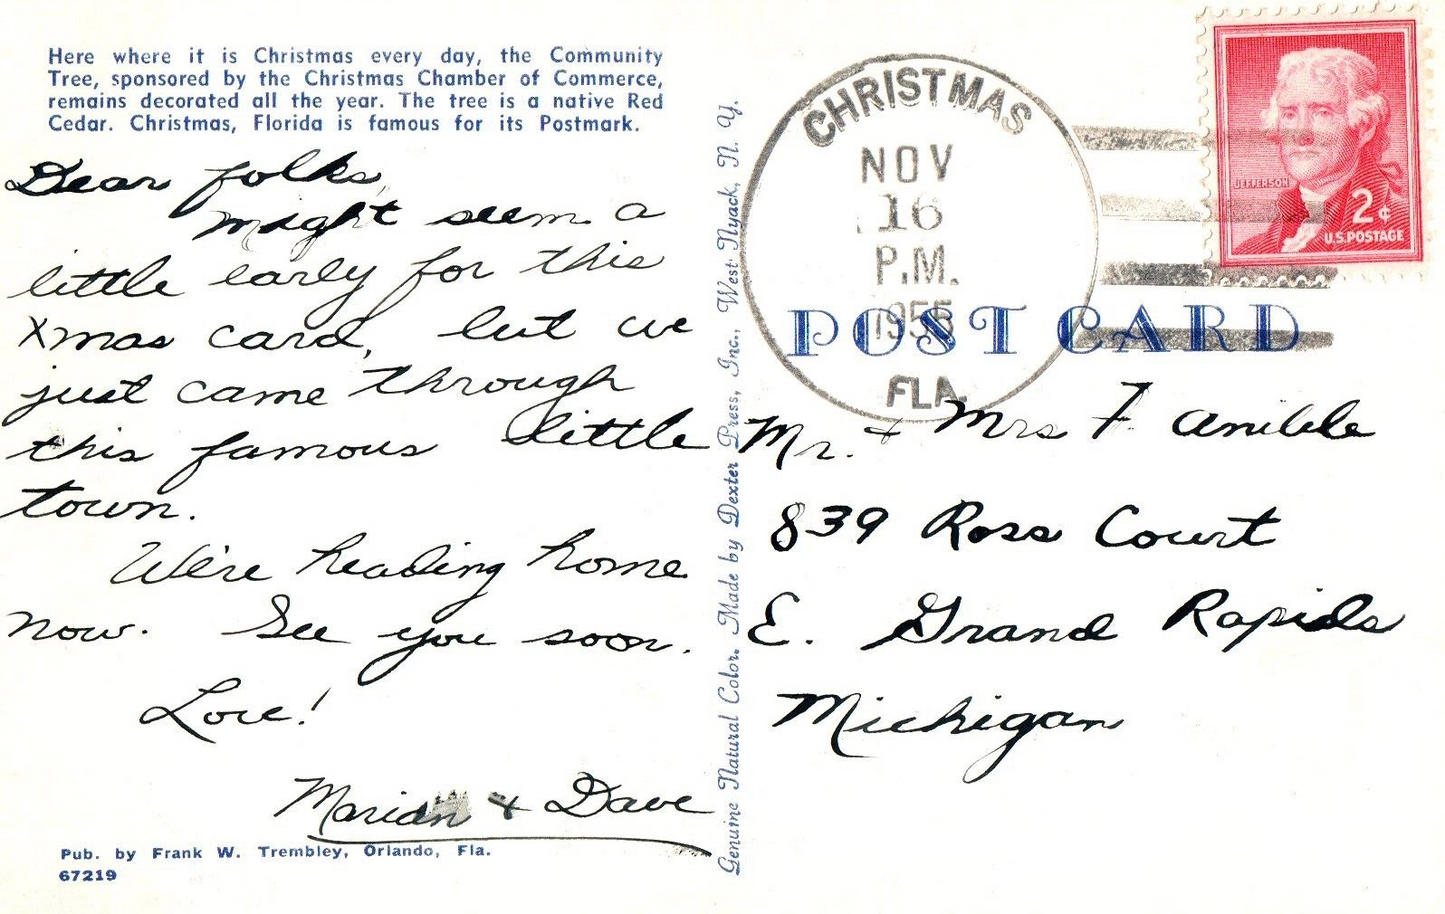 Here where it is Christmas every day, the Community
Tree, sponsored by the Christmas Chamber of Commerce,
remains decorated all the year. The tree is a native Red
Cedar. Christmas, Florida is famous for its Postmark.
Dear folks,
might seem a
little early for this
Xmas card, but we
just came through
this famous little
town.
We're heading home
now. See you soon.
Love!
Marian & Dave
Pub. by Frank W. Trembley, Orlando, Fla.
67219
Genuine Natural Color. Made by Dexter Press, Inc., West Nyack, N. Y.
CHRISTMAS
NOV
16
P.M.
1955
FLA.
JEFFERSON
2¢
U.S. POSTAGE
POST CARD
Mr. & Mrs F.
839 Ross Court
E. Grand Rapids
Michigan